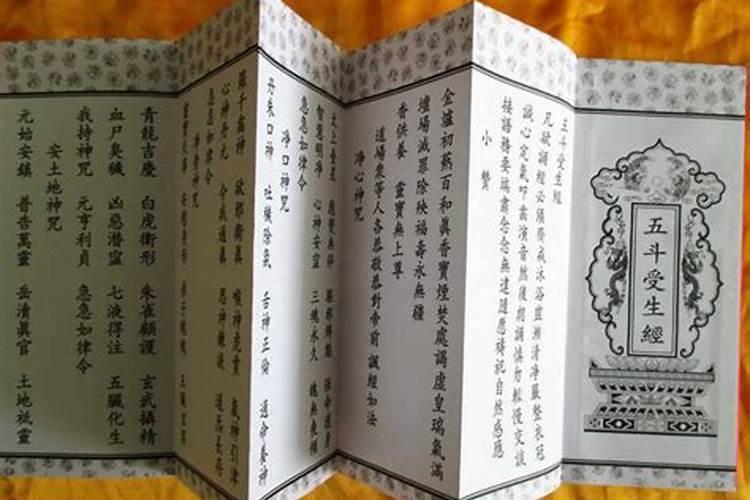 五斗受生經
五斗受生經
凡欲誦經必須齋戒沐浴盥漱清淨嚴整衣冠
誠心定氣叩齒演音然後朗誦慎勿輕慢交談
接語務要端肅念念無違隨應禱祀自然感應
小贊
金爐初爇百和真香寶煙焚處謁虛皇瑞氣滿
壇場滅罪除殃福壽永無疆
香供養 靈寶無上尊
道場眾等人各恭敬恭對帝前 誦經如法
淨心神咒
太上台星 應變無停 驅邪縛魅 保命護身
智慧明淨 心神安寧 三魂永久 魄無喪傾
急急如律令
淨口神咒
丹朱口神 吐穢除氛 舌神正倫 通命養神
羅千齒神 卻邪衛真 喉神虎賁 氣神引津
心神丹元 令我通真 思神鍊液 道炁長存
急急如律令
淨身神咒
靈寶天尊 安慰身形 弟子魂魄 五臟玄冥
青龍吉慶 白虎衛形 朱雀顧護 玄武攝精
血尸臭穢 凶惡潛寧 七液得注 五臟化生
我持神咒 元亨利貞 急急如律令
安土地神咒
元始安鎮 普告萬靈 岳瀆真官 土地祇靈